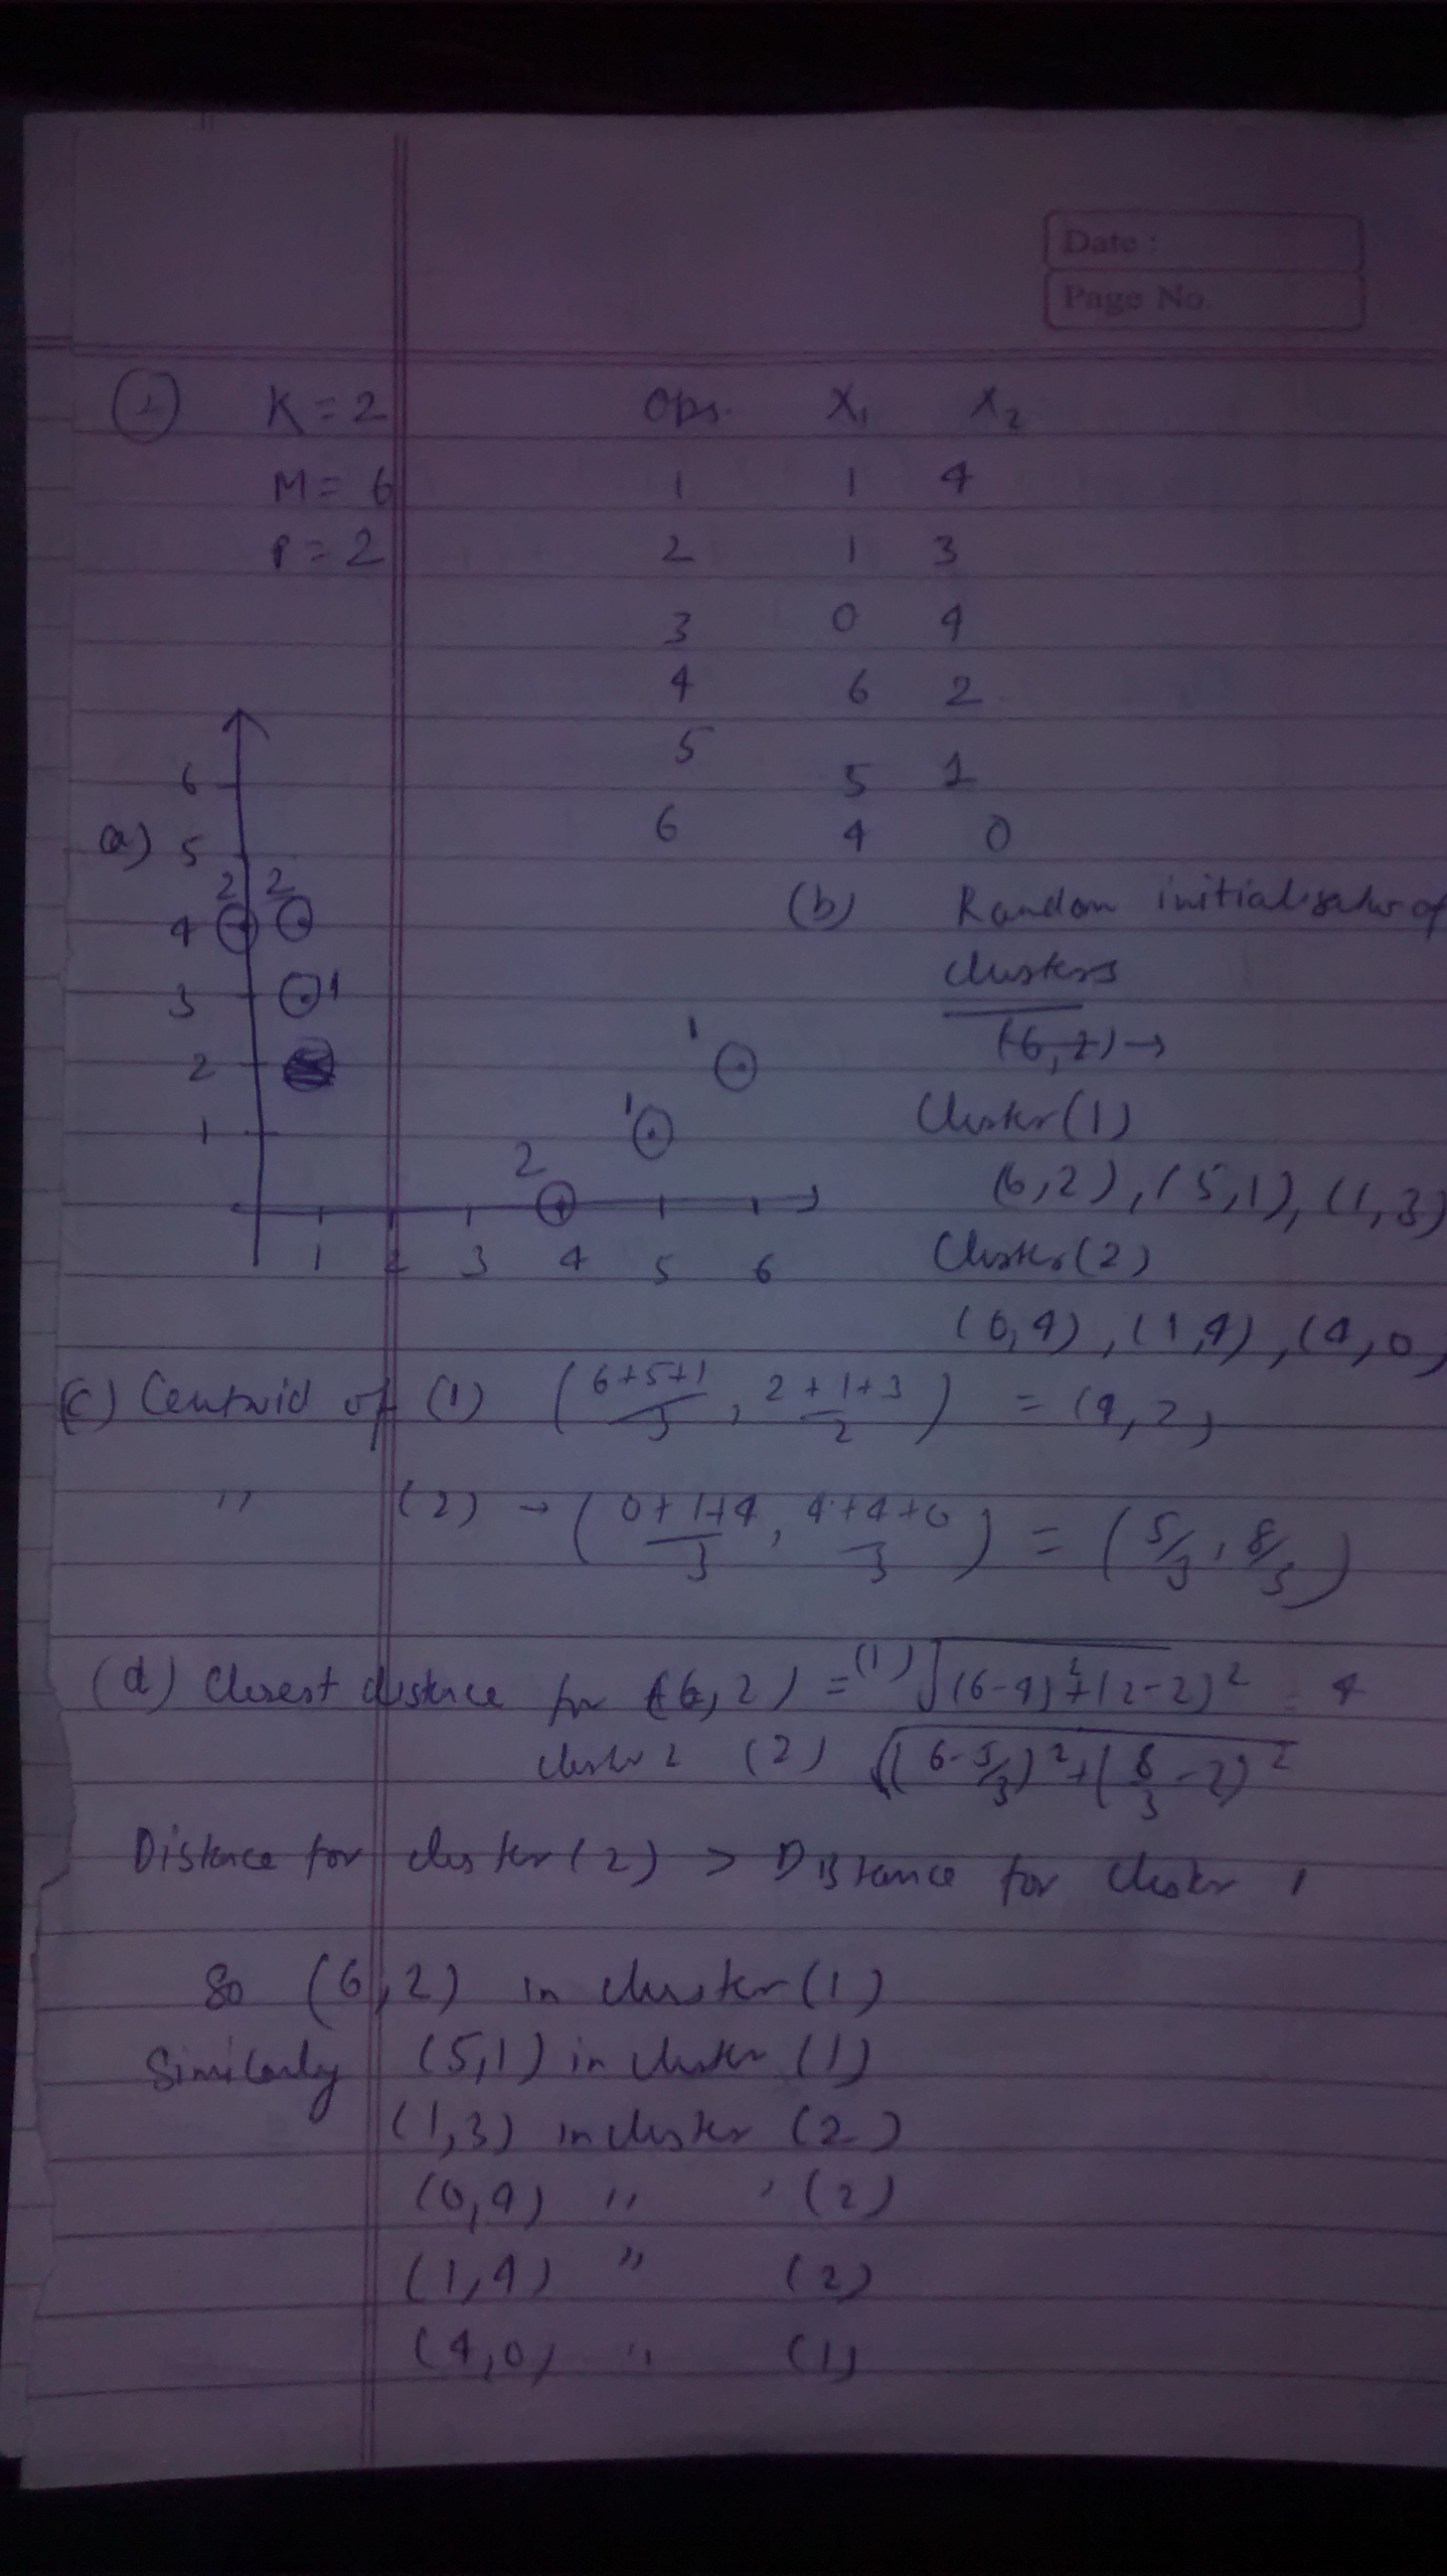 Date :
Page No.
(1) K = 2 Obs. X₁ X₂
M = 6 1 1 4
P = 2 2 1 3
3 0 4
4 6 2
5 5 1
6 4 0
(a)
6
5
4
3
2
1
2 2
1
1
1
2
1 2 3 4 5 6
(b) Random initialisation of
clusters
(6,2) →
Cluster (1)
(6,2), (5,1), (1,3)
Cluster (2)
(0,4), (1,4), (4,0)
(c) Centroid of (1) ((6+5+1)/3, (2+1+3)/2) = (4,2)
" (2) → ((0+1+4)/3, (4+4+0)/3) = (5/3, 8/3)
(d) Closest distance for (6,2) = (1) √((6-4)²+(2-2)²) = 4
cluster 2 (2) √((6-5/3)²+(8/3-2)²)
Distance for cluster (2) > Distance for cluster 1
So (6,2) in cluster (1)
Similarly (5,1) in cluster (1)
(1,3) in cluster (2)
(0,4) " " (2)
(1,4) " (2)
(4,0) " (1)